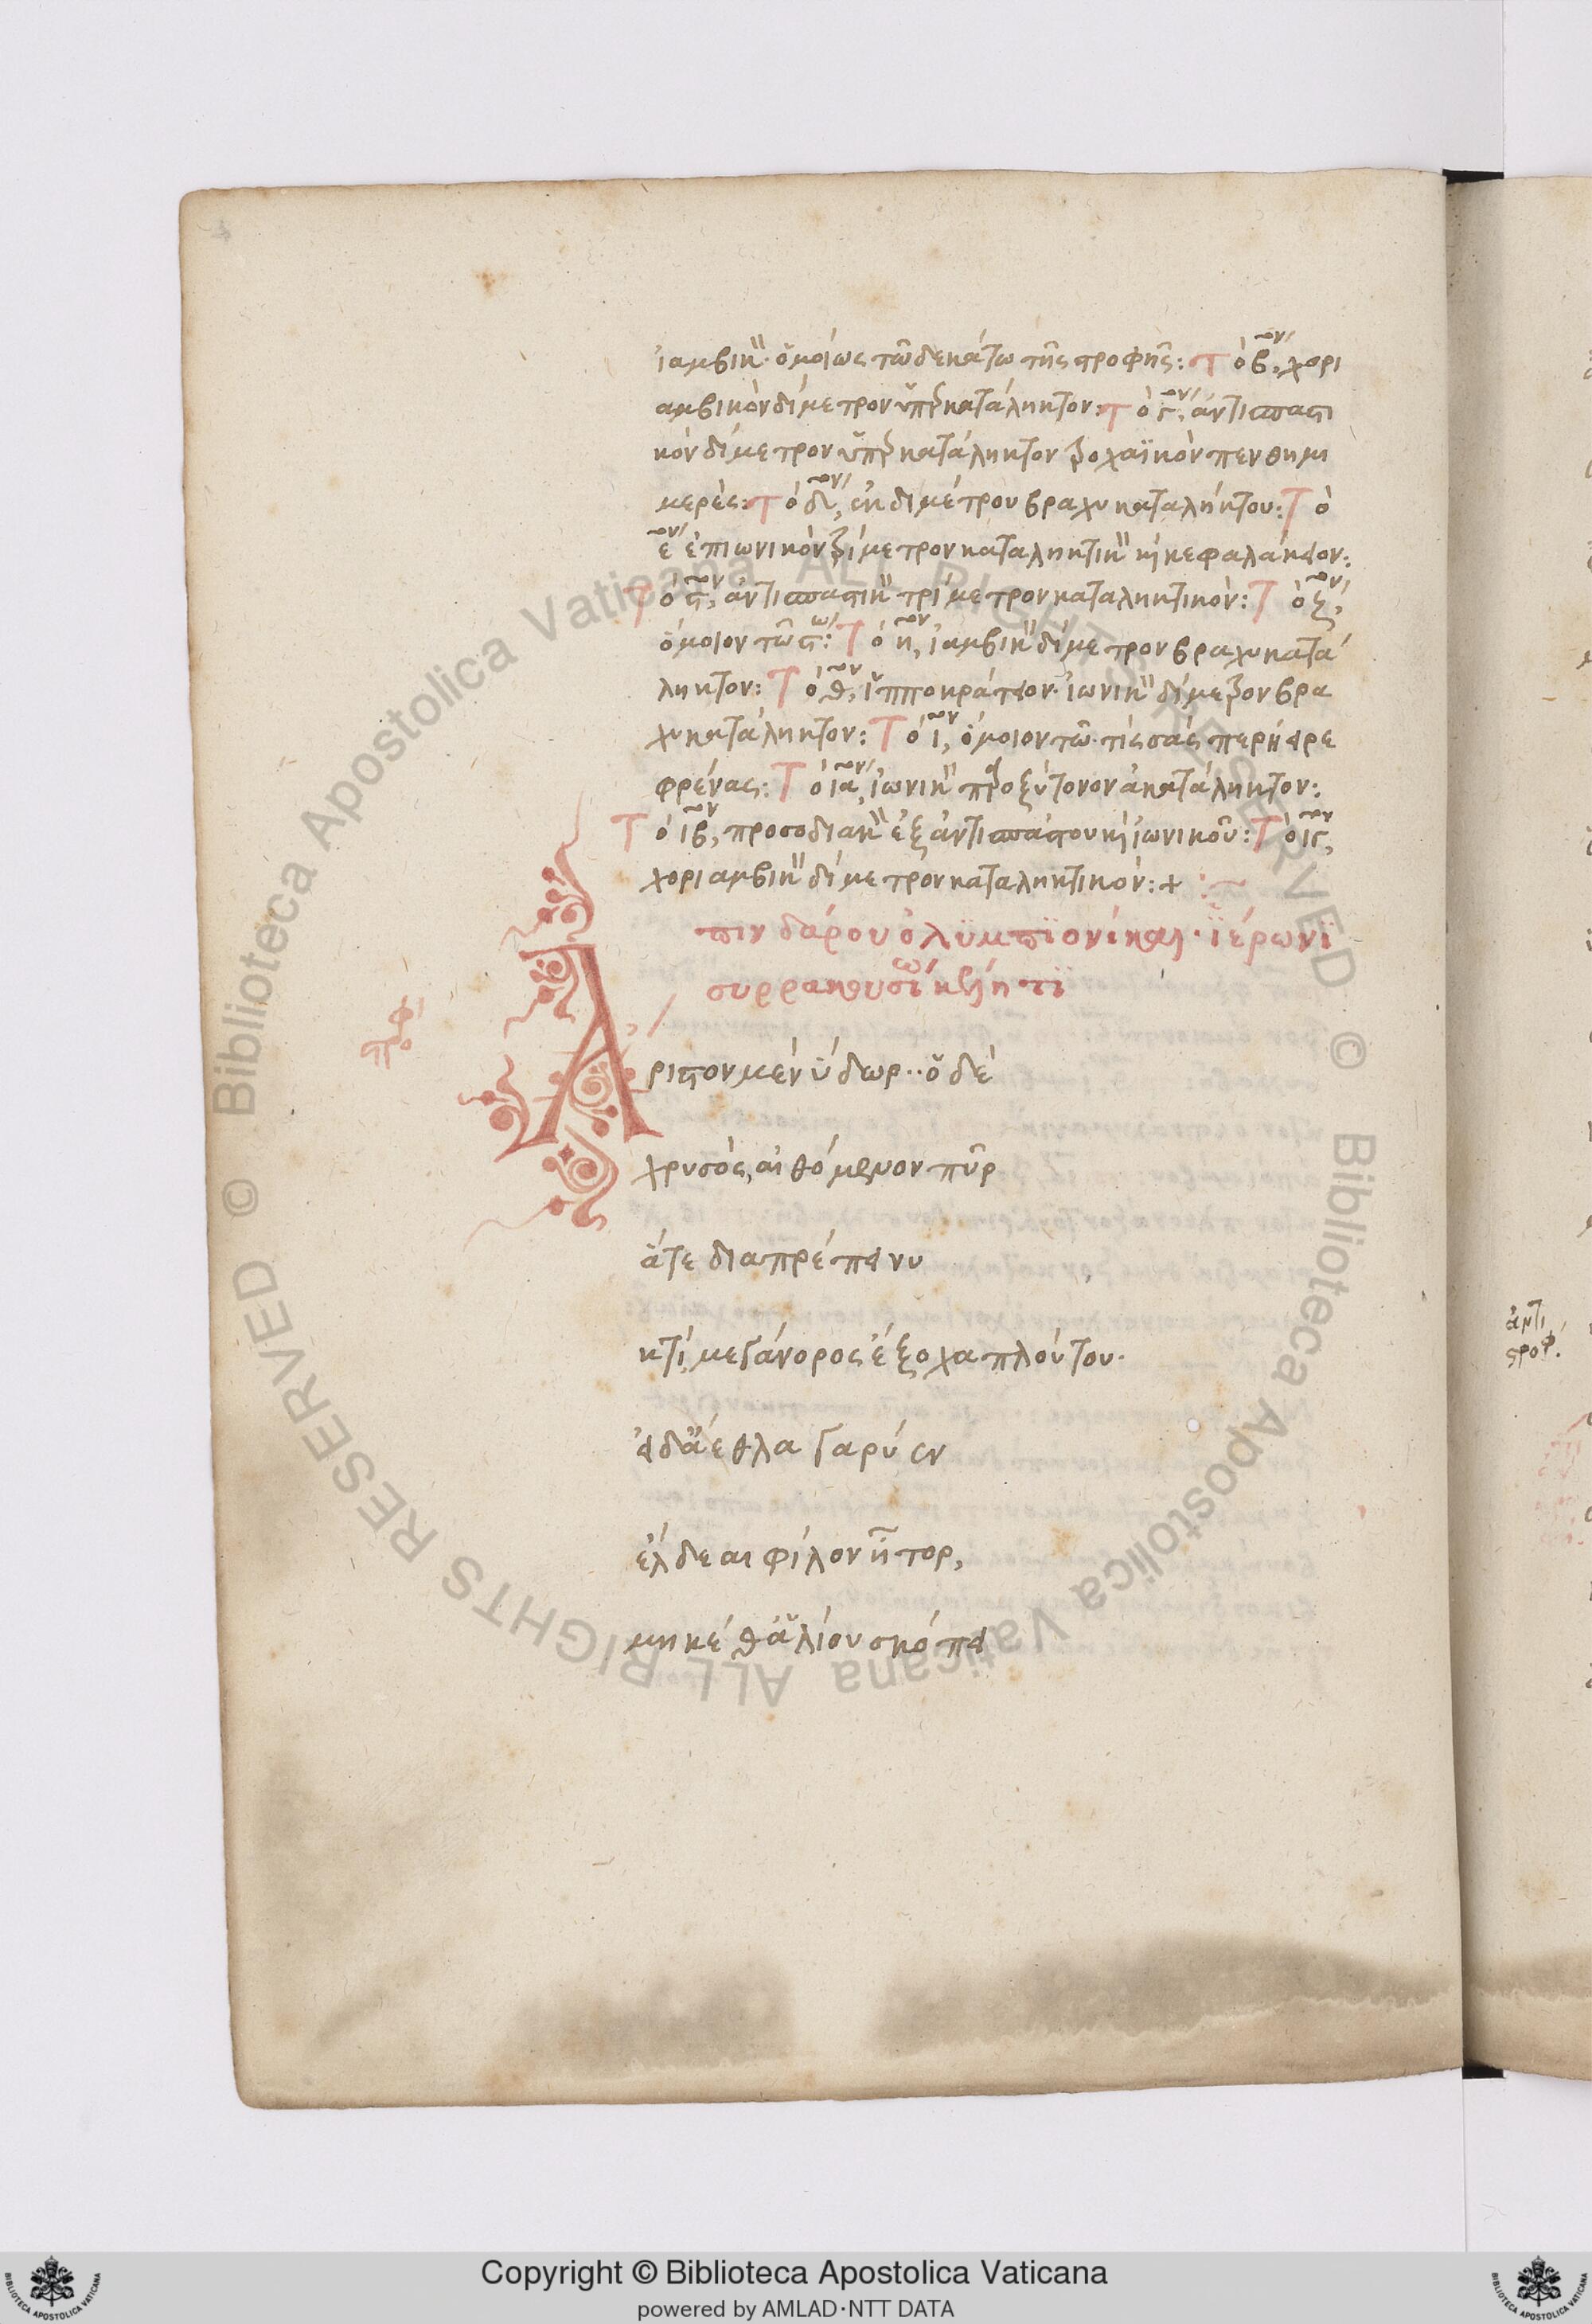 ἰαμβικ̏· ὁμοίως τῶ δεκάτω τῆς στροφῆς: Τὸ β̅ον, χορι
αμβικὸν δίμετρον ὑπὲρκατάληκτον: Τὸ γ̅ον, ἀντισπαστι
κὸν δίμετρον ὑπὲρκατάληκτον τροχαϊκὸν πενθημι
μερές: Τὸ δ̅ον, ἐκ διμέτρου βραχυκαταλήκτου: Τὸ
ε̅ον ἐπιωνικὸν τρίμετρον καταληκτικ̏ ἠὶ κεφαλάκειον:
Τὸ ϛ̅ον, ἀντισπαστικ̏ τρίμετρον καταληκτικόν: Τὸ ζ̅ον,
ὅμοιον τῶ ϛ̅ω: Τὸ η̅ον, ἰαμβικ̏ δίμετρον βραχυκατά
ληκτον: Τὸ θ̅ον, ἱπποκράτειον· ἰωνικ̏ δίμετρον βρα
χυκατάληκτον: Τὸ ι̅ον, ὅμοιον τῶ· τίς σὰς περήειρε
φρένας: Τὸ ια̅ον, ἰωνικ̏ προξύτονον ἀκατάληκτον:
Τὸ ιβ̅ον, προσοδιακ̏ ἐξ ἀντισπάστου κὶ ἰωνικοῦ: Τὸ ιγ̅ον,
χοριαμβικ̏ δίμετρον καταληκτικόν: +
πινδάρου ὀλϋμπϊονίκαι· ϊέρωνϊ
συρρακουσίω κέλητϊ
στροφ
Ἄριστον μὲν ὕδωρ·· ὁ δὲ
χρυσὸς, αἰθόμενον πῦρ
ἅτε διαπρέπει νυ
κτὶ, μεγάνορος ἔξοχα πλούτου·
εἰ δ' ἄεθλα γαρύεν
ἔλδεαι φίλον ἦτορ,
μηκέθ' ἁλίου σκόπει
ἀντι
στροφ.
Copyright © Biblioteca Apostolica Vaticana
powered by AMLAD·NTT DATA
© Biblioteca Apostolica Vaticana ALL RIGHTS RESERVED © Biblioteca Apostolica Vaticana ALL RIGHTS RESERVED
BIBLIOTECA APOSTOLICA VATICANA
BIBLIOTECA APOSTOLICA VATICANA